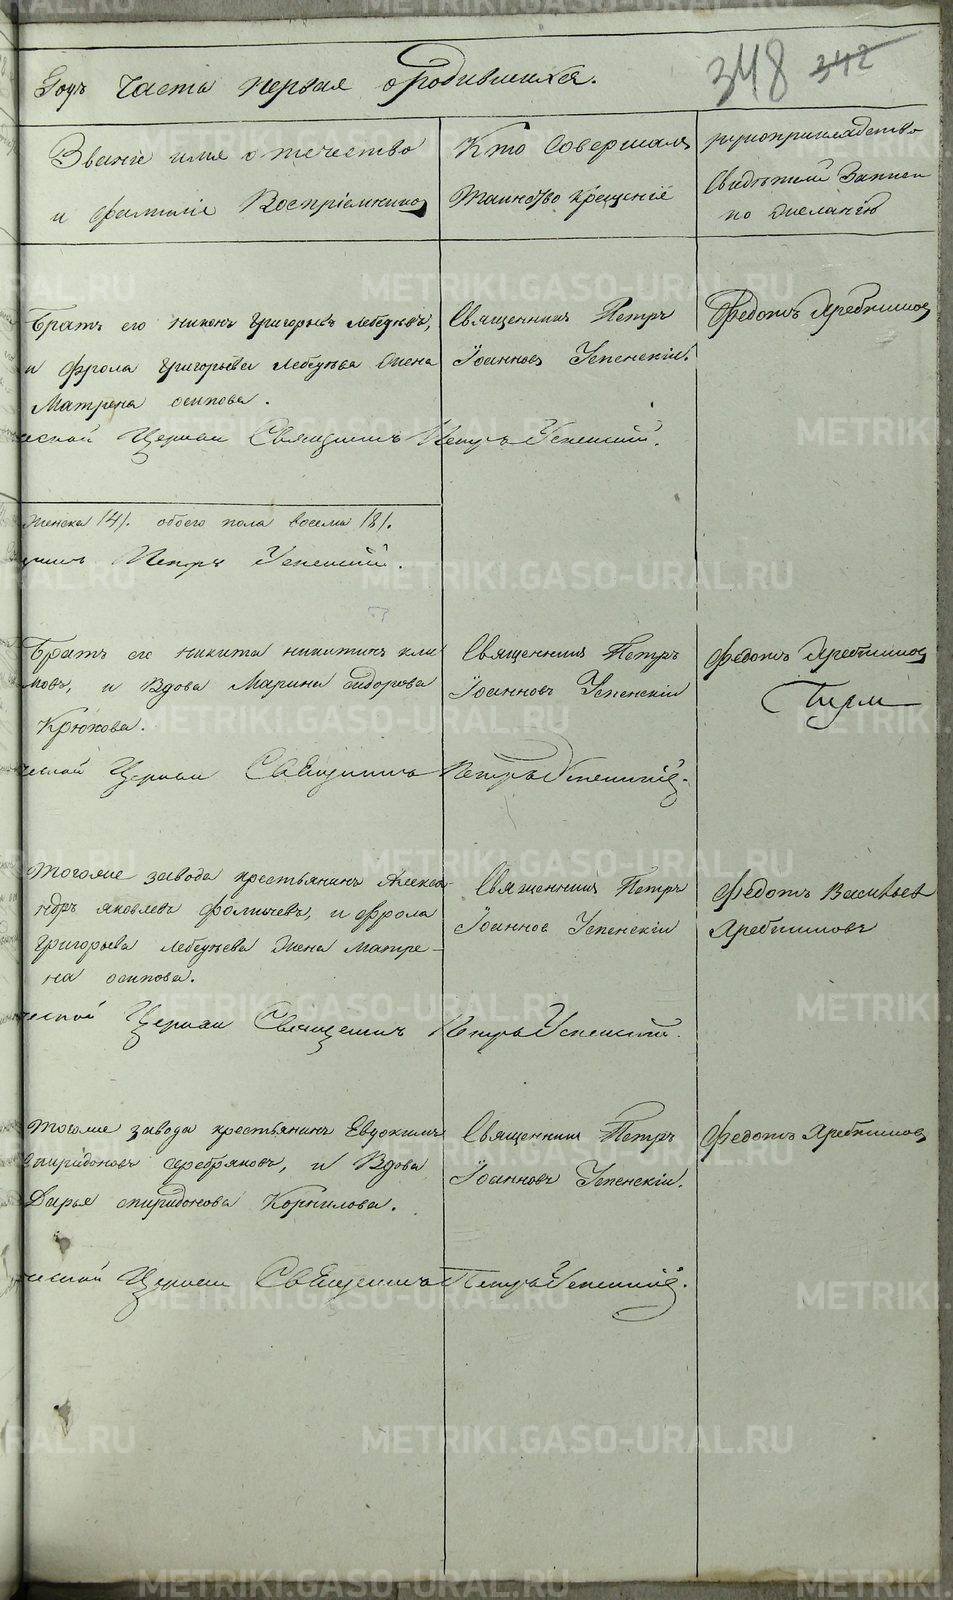 Годъ Часть первая о родившихся.
348 342
Званіе имя отечество
и фамиліе Воспріемниковъ
Кто Совершалъ
Таинство крещеніе
рукоприкладство
Свидѣтелей Записи
по желанію
Братъ его Никонъ Григорьевъ Лебедевъ,
и Фрола Григорьева Лебедева жена
Матрена осипова.
Священникъ Петръ
Іоанновъ Успенскій.
Федотъ Хребтиковъ
ской Церкви Священникъ Петръ Успенскій.
женска /4/. обоего пола восемь /8/.
Петръ Успенскій.
Братъ ея никита никитинъ кли
мовъ, и Вдова Марина сидорова
Крюкова.
Священникъ Петръ
Іоанновъ Успенскій
Федотъ
ской Церкви Священникъ Петръ Успенскій.
Тогоже завода крестьянинъ Алекса
ндръ яковлевъ Фомичевъ, и Фрола
Григорьева Лебедева жена Матре-
на осипова.
Священникъ Петръ
Іоанновъ Успенскій
Федотъ Васильевъ
ской Церкви Священникъ Петръ Успенскій.
Тогоже завода крестьянинъ Евдокимъ
Спиридоновъ серебряковъ, и Вдова
Дарья спиридонова Корнилова.
Священникъ Петръ
Іоанновъ Успенскій.
Федотъ
ской Церкви Священникъ Петръ Успенскій.
METRIKI.GASO-URAL.RU